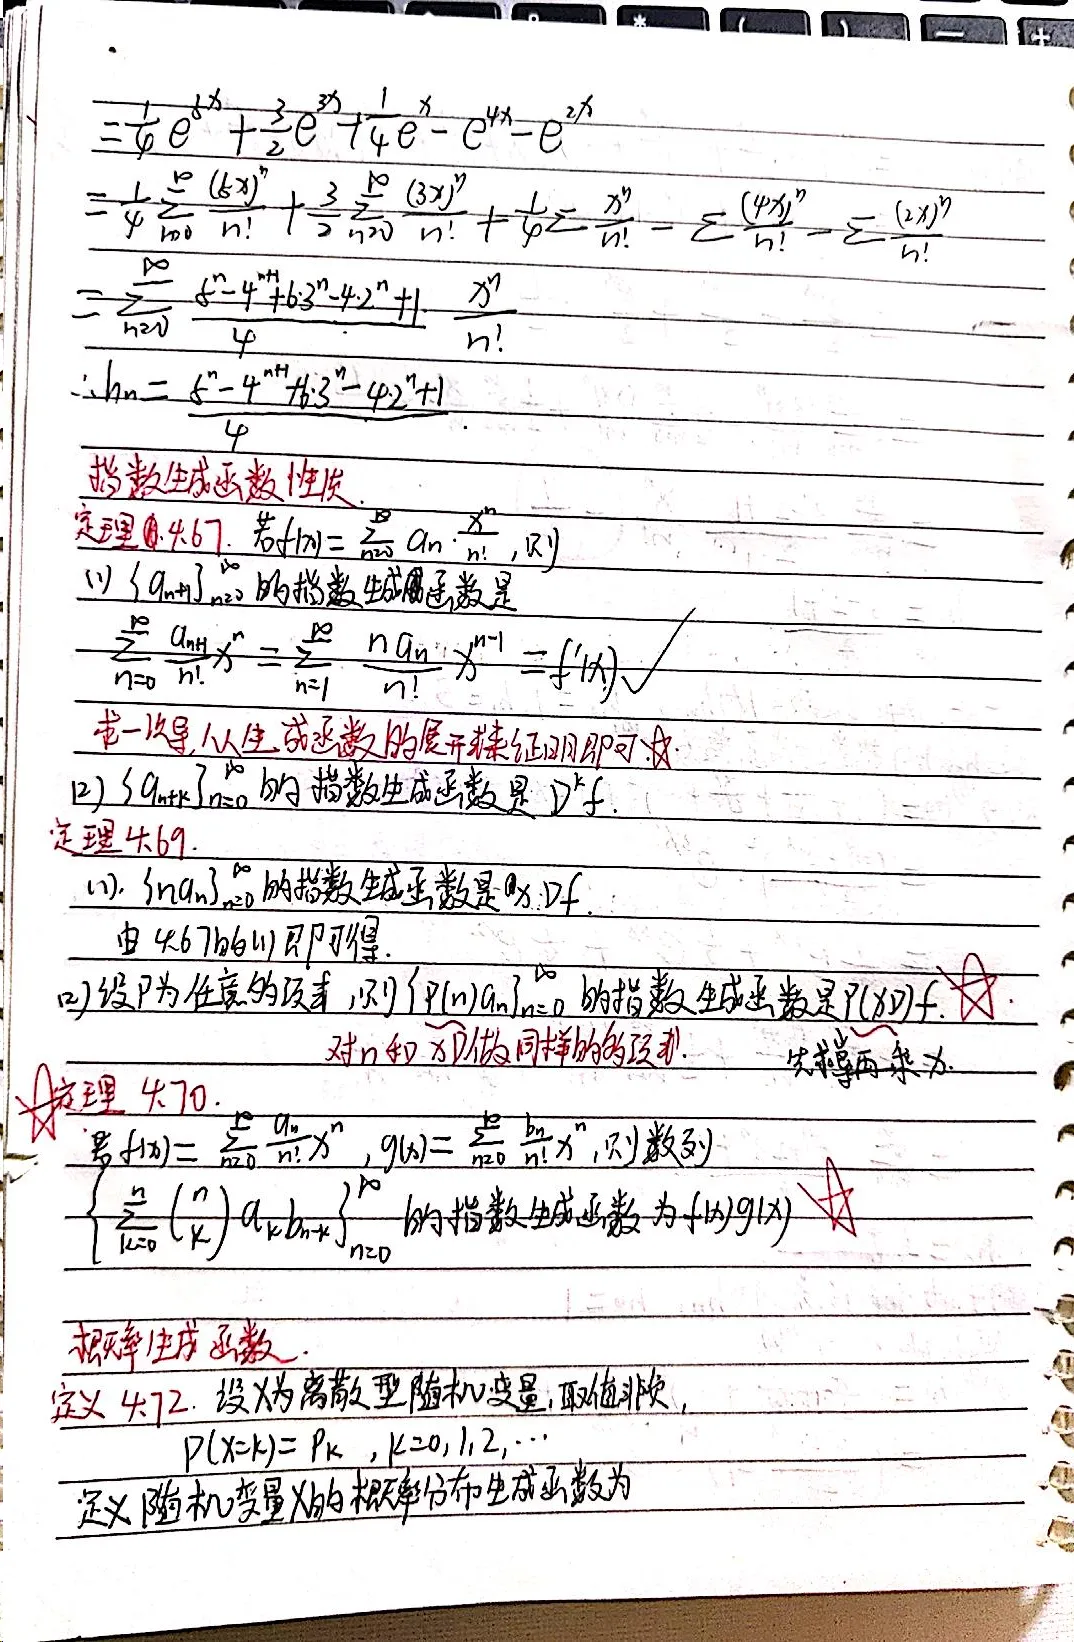 = 1/4 e^{5x} + 3/2 e^{3x} + 1/4 e^x - e^{4x} - e^{2x}
= 1/4 ∑_{n=0}^∞ (5x)^n/n! + 3/2 ∑_{n=0}^∞ (3x)^n/n! + 1/4 ∑ x^n/n! - ∑ (4x)^n/n! - ∑ (2x)^n/n!
= ∑_{n=0}^∞ (5^n - 4^{n+1} + 6·3^n - 4·2^n + 1)/4 · x^n/n!
∴ h_n = (5^n - 4^{n+1} + 6·3^n - 4·2^n + 1)/4 .
指数生成函数性质.
定理 4.67. 若f(x) = ∑_{n=0}^∞ a_n · x^n/n! , 则
(1) {a_{n+1}}_{n=0}^∞ 的指数生成函数是
∑_{n=0}^∞ a_{n+1}/n! x^n = ∑_{n=1}^∞ n a_n/n! x^{n-1} = f'(x) ✓
求一次导,从生成函数的展开来证明即可.☆.
(2) {a_{n+k}}_{n=0}^∞ 的指数生成函数是 D^k f.
定理 4.69.
(1). {n a_n}_{n=0}^∞ 的指数生成函数是 x Df.
由 4.67的(1) 即可得.
(2) 设P为任意的项式 , 则{P(n)a_n}_{n=0}^∞ 的指数生成函数是P(xD)f. ☆.
对n和 xD做同样的多项式.
先求导再乘x.
☆定理 4.70.
若f(x) = ∑_{n=0}^∞ a_n/n! x^n , g(x) = ∑_{n=0}^∞ b_n/n! x^n , 则数列
{∑_{k=0}^n (n k) a_k b_{n-k}}_{n=0}^∞ 的指数生成函数为 f(x)g(x) ☆
概率生成函数.
定义 4.72. 设X为离散型随机变量,取值非负,
P(X=k) = P_k , k=0,1,2,…
定义随机变量X的概率分布生成函数为